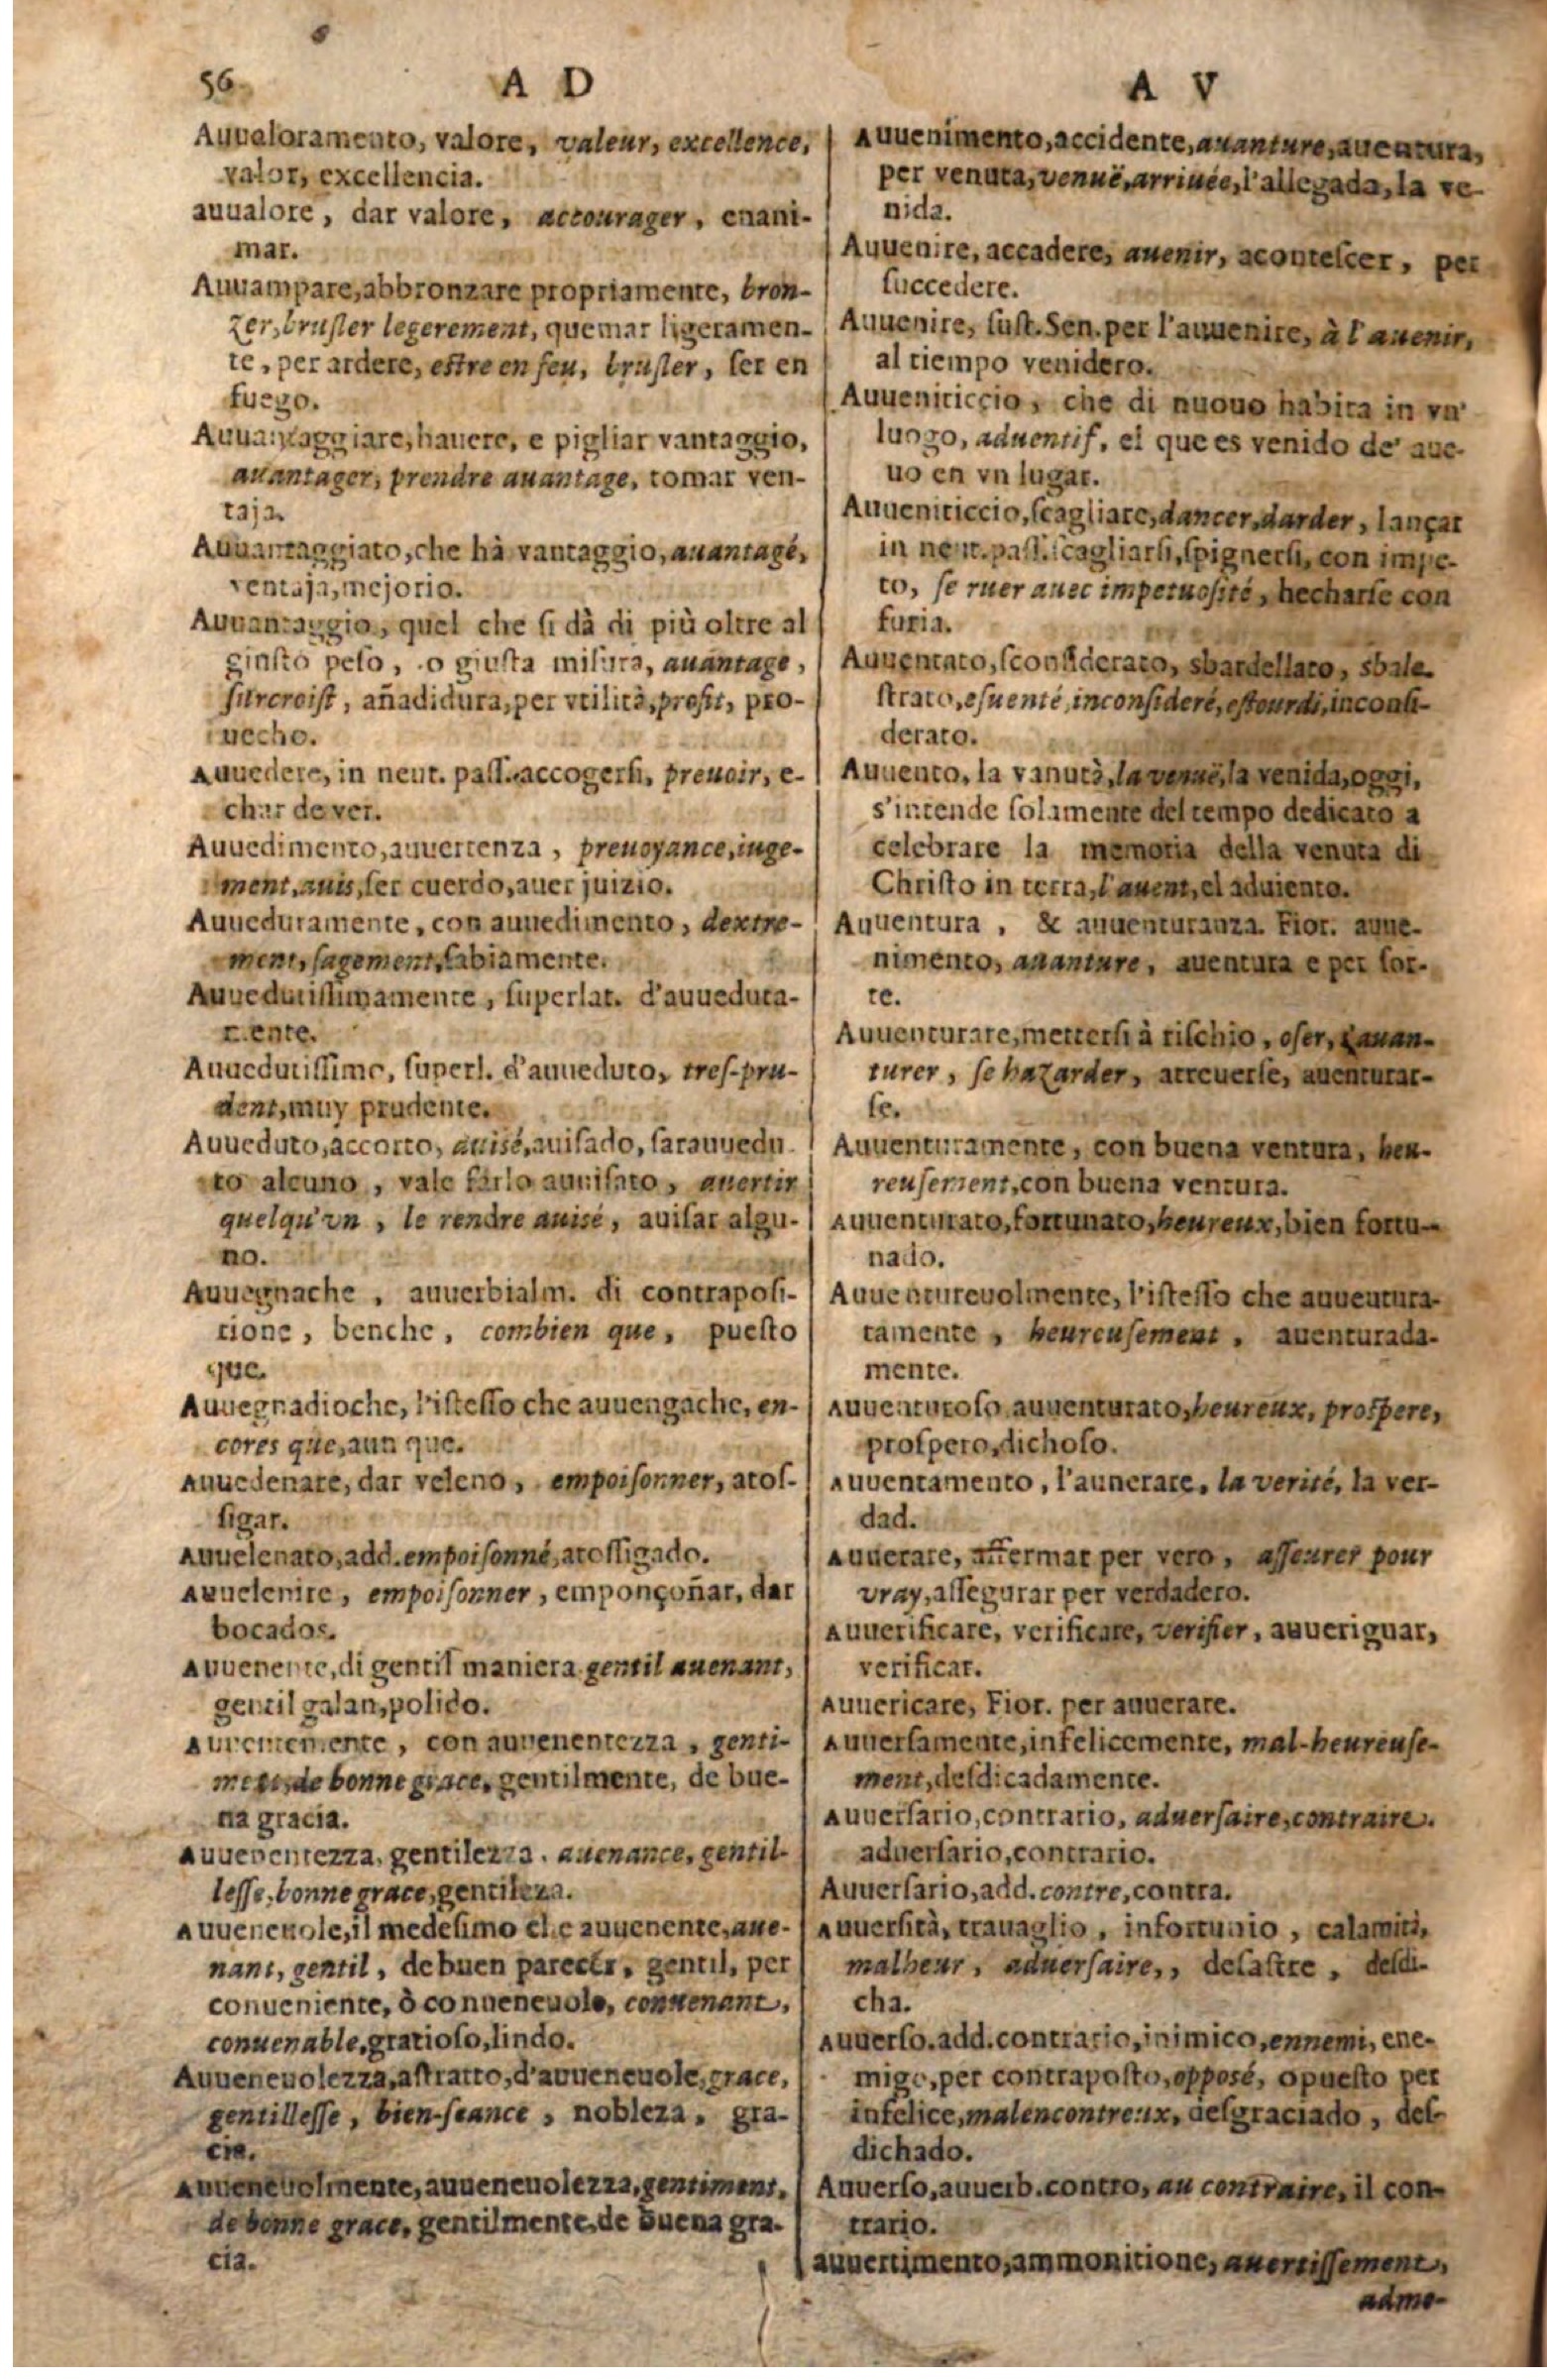 56
A D
Auualoramento, valore, valeur, excellence,
valor, excellencia.
auualore, dar valore, accourager, enani-
mar.
Auuampare, abbronzare propriamente, bron-
zer, brusler legerement, quemar ligeramen-
te, per ardere, estre en feu, brusler, ser en
fuego.
Auuantaggiare, hauere, e pigliar vantaggio,
auantager, prendre auantage, tomar ven-
taja.
Auuantaggiato, che hà vantaggio, auantagé,
ventaja, mejorio.
Auuantaggio, quel che si dà di più oltre al
giusto peso, o giusta misura, auantage,
surcroist, añadidura, per vtilità, profit, pro-
uecho.
Auuedere, in neut. pass. accogersi, preuoir, e-
char de ver.
Auuedimento, auuertenza, preuoyance, iuge-
ment, auis, ser cuerdo, auer juizio.
Auueduramente, con auuedimento, dextre-
ment, sagement, sabiamente.
Auuedutissimamente, superlat. d'auueduta-
mente.
Auuedutissimo, superl. d'auueduto, tres-pru-
dent, muy prudente.
Auueduto, accorto, auisé, auisado, farauuedu-
to alcuno, vale farlo auuisato, auertir
quelqu'vn, le rendre auisé, auisar algu-
no.
Auuegnache, auuerbialm. di contraposi-
tione, benche, combien que, puesto
que.
Auuegnadioche, l'istesso che auuengache, en-
cores que, aun que.
Auuedenare, dar veleno, empoisonner, atos-
sigar.
Auuelenato, add. empoisonné, atossigado.
Auuelenire, empoisonner, emponçoñar, dar
bocados.
Auuenente, di gentil maniera gentil auenant,
gentil galan, polido.
Auuenentemente, con auuenentezza, genti-
ment, de bonne grace, gentilmente, de bue-
na gracia.
Auuenentezza, gentilezza, auenance, gentil-
lesse, bonne grace, gentileza.
Auueneuole, il medesimo che auuenente, aue-
nant, gentil, de buen parecer, gentil, per
conueniente, ò conueneuole, conuenant,
conuenable, gratioso, lindo.
Auueneuolezza, astratto, d'auueneuole, grace,
gentillesse, bien-seance, nobleza, gra-
cia.
Auueneuolmente, auueneuolezza, gentiment,
de bonne grace, gentilmente, de buena gra-
cia.
A V
Auuenimento, accidente, auanture, auentura,
per venuta, venuë, arriuée, l'allegada, la ve-
nida.
Auuenire, accadere, auenir, acontescer, per
succedere.
Auuenire, sust. Sen. per l'auuenire, à l'auenir,
al tiempo venidero.
Auueniticcio, che di nuouo habita in vn'
luogo, aduentif, el que es venido de' aue-
uo en vn lugar.
Auueniticcio, scagliare, dancer, darder, lançar
in neut. pass. scagliarsi, spignersi, con impe-
to, se ruer auec impetuosité, hecharse con
furia.
Auuentato, sconsiderato, sbardellato, sbale-
strato, esuenté, inconsideré, estourdi, inconsi-
derato.
Auuento, la vanutà, la venuë, la venida, oggi,
s'intende solamente del tempo dedicato a
celebrare la memoria della venuta di
Christo in terra, l'auent, el aduiento.
Auuentura, & auuenturanza. Fior. auue-
nimento, auanture, auentura e per sor-
te.
Auuenturare, mettersi à rischio, oser, s'auan-
turer, se hazarder, atreuerse, auenturar-
se.
Auuenturamente, con buena ventura, heu-
reusement, con buena ventura.
Auuenturato, fortunato, heureux, bien fortu-
nado.
Auuenturevolmente, l'istesso che auuentura-
tamente, heureusement, auenturada-
mente.
Auuenturoso auuenturato, heureux, prospere,
prospero, dichoso.
Auuentamento, l'auuerare, la verité, la ver-
dad.
Auuerare, affermar per vero, asseurer pour
vray, assegurar per verdadero.
Auuerificare, verificare, verifier, auueriguar,
verificar.
Auuericare, Fior. per auuerare.
Auuersamente, infelicemente, mal-heureuse-
ment, desdicadamente.
Auuersario, contrario, aduersaire, contraire.
aduersario, contrario.
Auuersario, add. contre, contra.
Auuersità, trauaglio, infortunio, calamità,
malheur, aduersaire,, desastre, desdi-
cha.
Auuerso. add. contrario, inimico, ennemi, ene-
migo, per contraposto, opposé, opuesto per
infelice, malencontreux, desgraciado, des-
dichado.
Auuerso, auuerb. contro, au contraire, il con-
trario.
auuertimento, ammonitione, auertissement,
admo-